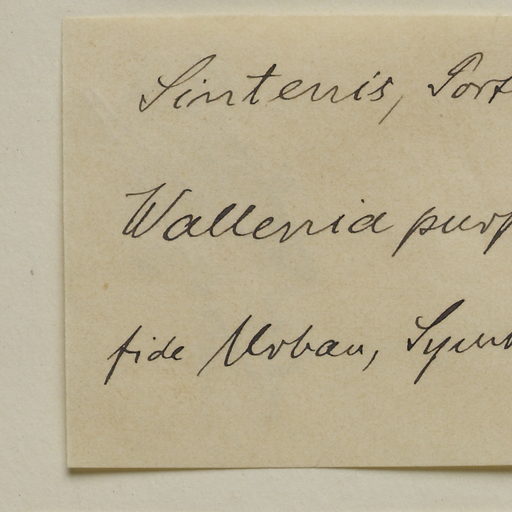 Sintenis, Port
Wallenia purp
fide Urban, Symb